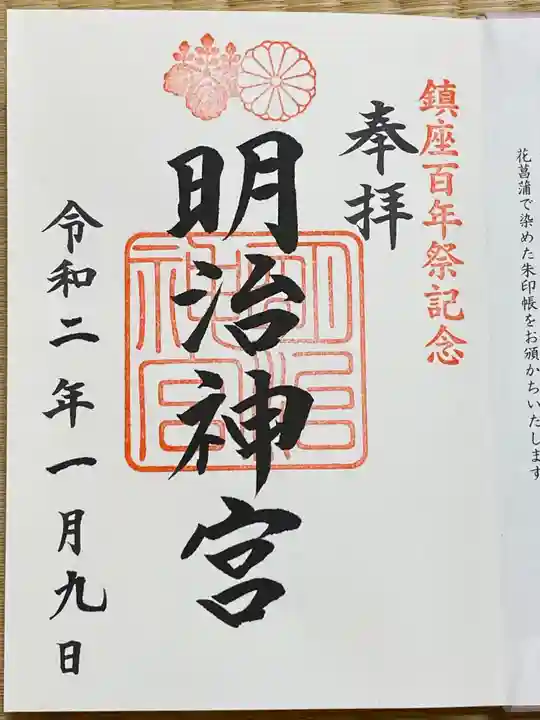 花菖蒲で染めた朱印帳をお頒かちいたします
鎮座百年祭記念
奉拝
明治神宮
明治神宮
令和二年一月九日